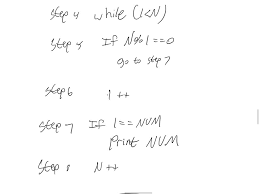 Step 4 while (1<N)
Step 5 If N%1==0
go to step 7
Step 6 i ++
Step 7 If 1==NUM
print NUM
Step 8 N++